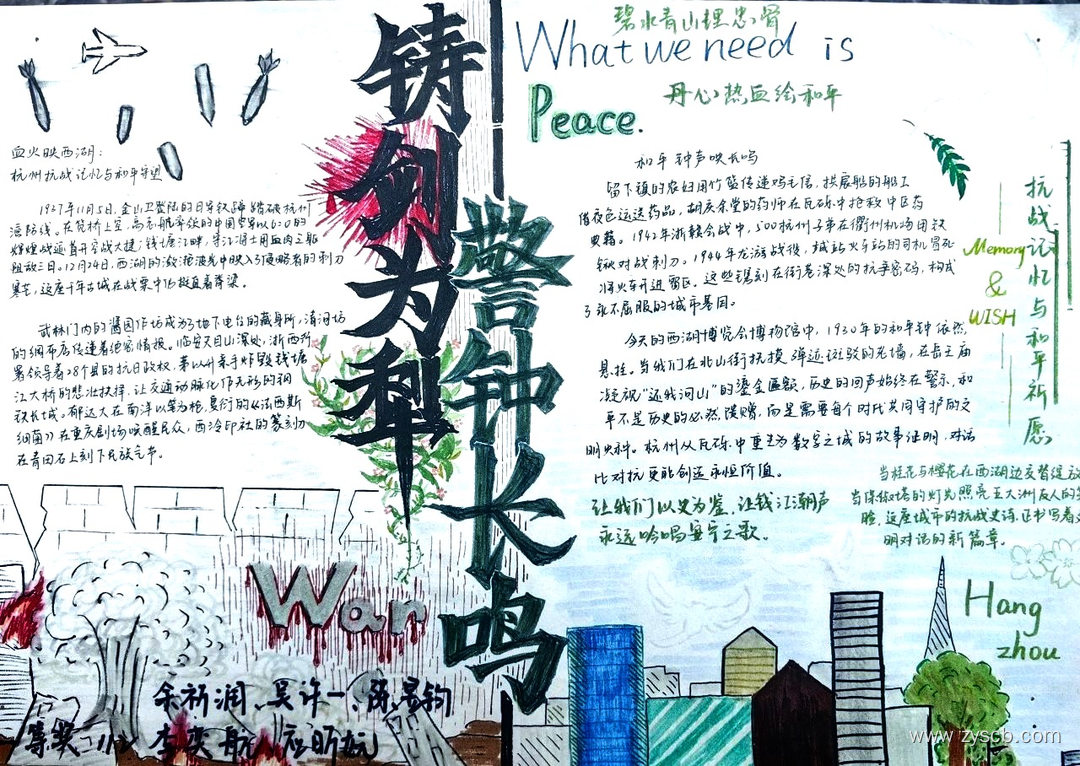 铸剑为犁
警钟长鸣
碧水青山埋忠骨
What we need is
丹心热血绘和平
Peace.
血火映西湖：
杭州抗战记忆与和平守望
1937年11月5日，金山卫登陆的日军铁蹄踏破杭州
湾防线。在笕桥上空，高志航率领的中国空军以6:0的
辉煌战适首开空战大捷；钱塘江畔，守江将士用血肉之躯
阻敌三日。12月24日，西湖的潋滟波光中映入了侵略者的刺刀
寒芒，这座千年古城在战栗中仍挺直着脊梁。
武林门内的酱园作坊成为了地下电台的藏身所，清河坊
的绸布店传递着绝密情报。临安天目山深处，浙西行
署领导着28个县的抗日政权，茅以升亲手炸毁钱塘
江大桥的悲壮抉择，让交通动脉化作无形的钢
铁长城。郁达夫在南洋以笔为枪，夏衍的《法西斯
细菌》在重庆剧场唤醒民众，西泠印社的篆刻刀
在青田石上刻下民族气节。
和平钟声映长鸣
留下镇的农妇用竹篮传递鸡毛信，拱宸船的船工
借夜色运送药品，胡庆余堂的药师在瓦砾中抢救中医药
典籍。1942年浙赣会战中，500杭州子弟在衢州机场用铁
锹对战刺刀。1944年龙游战役，城站火车站的司机冒死
将火车开进雷区。这些镌刻在街巷深处的抗争密码，构成
了永不屈服的城市基因。
今天的西湖博览会博物馆中，1930年的和平钟依然
悬挂。当我们在北山街抚摸弹迹斑驳的老墙，在岳王庙
凝视“还我河山”的鎏金匾额，历史的回声始终在警示，和
平不是历史的必然馈赠，而是需要每个时代共同守护的文
明火种。杭州从瓦砾中重生为数字之城的故事证明，对话
比对抗更能创造永恒价值。
让我们以史为鉴，让钱江潮声
永远吟唱安宁之歌。
抗战记忆与和平祈愿
Memory
&
WISH
当桂花与樱花在西湖边交替绽放
当保俶塔的灯光照亮五大洲友人的
脸，这座城市的抗战史诗，正书写着
明对话的新篇章。
War
Hang
zhou
www.zyscb.com